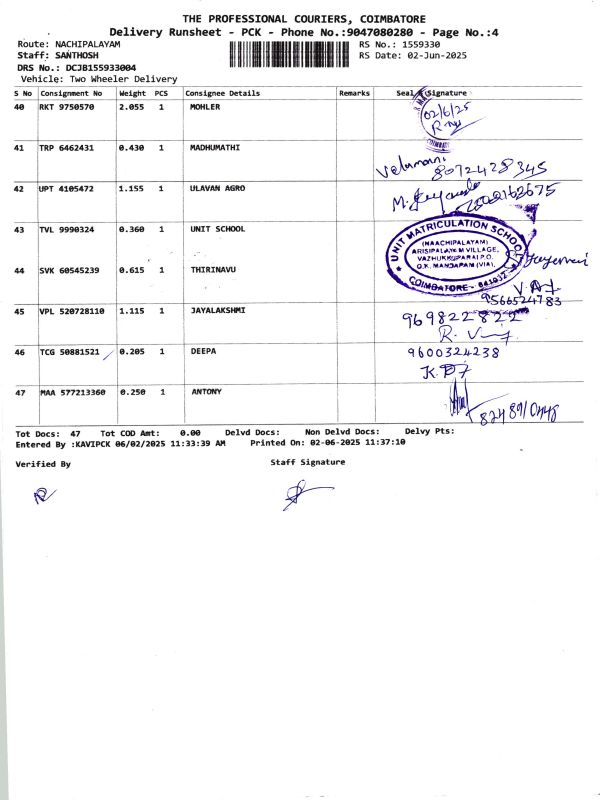 THE PROFESSIONAL COURIERS, COIMBATORE
Delivery Runsheet - PCK - Phone No.:9047080280 - Page No.:4
Route: NACHIPALAYAM RS No.: 1559330
Staff: SANTHOSH RS Date: 02-Jun-2025
DRS No.: DCJB155933004
Vehicle: Two Wheeler Delivery
S No Consignment No Weight PCS Consignee Details Remarks Seal & Signature
40 RKT 9750570 2.055 1 MOHLER
02/6/25
41 TRP 6462431 0.430 1 MADHUMATHI
Velumani
8072428345
42 UPT 4105472 1.155 1 ULAVAN AGRO
43 TVL 9990324 0.360 1 UNIT SCHOOL
UNIT MATRICULATION SCHOOL
(NAACHIPALAYAM)
ARISIPALAYAM VILLAGE,
VAZHUKKUPARAI P.O.
O.K. MANDAPAM (VIA).
COIMBATORE - 641032
44 SVK 60545239 0.615 1 THIRINAVU
9566524783
45 VPL 520728110 1.115 1 JAYALAKSHMI
969822822
46 TCG 50881521 0.205 1 DEEPA
9600324238
47 MAA 577213360 0.250 1 ANTONY
Tot Docs: 47 Tot COD Amt: 0.00 Delvd Docs: Non Delvd Docs: Delvy Pts:
Entered By :KAVIPCK 06/02/2025 11:33:39 AM Printed On: 02-06-2025 11:37:10
Verified By Staff Signature